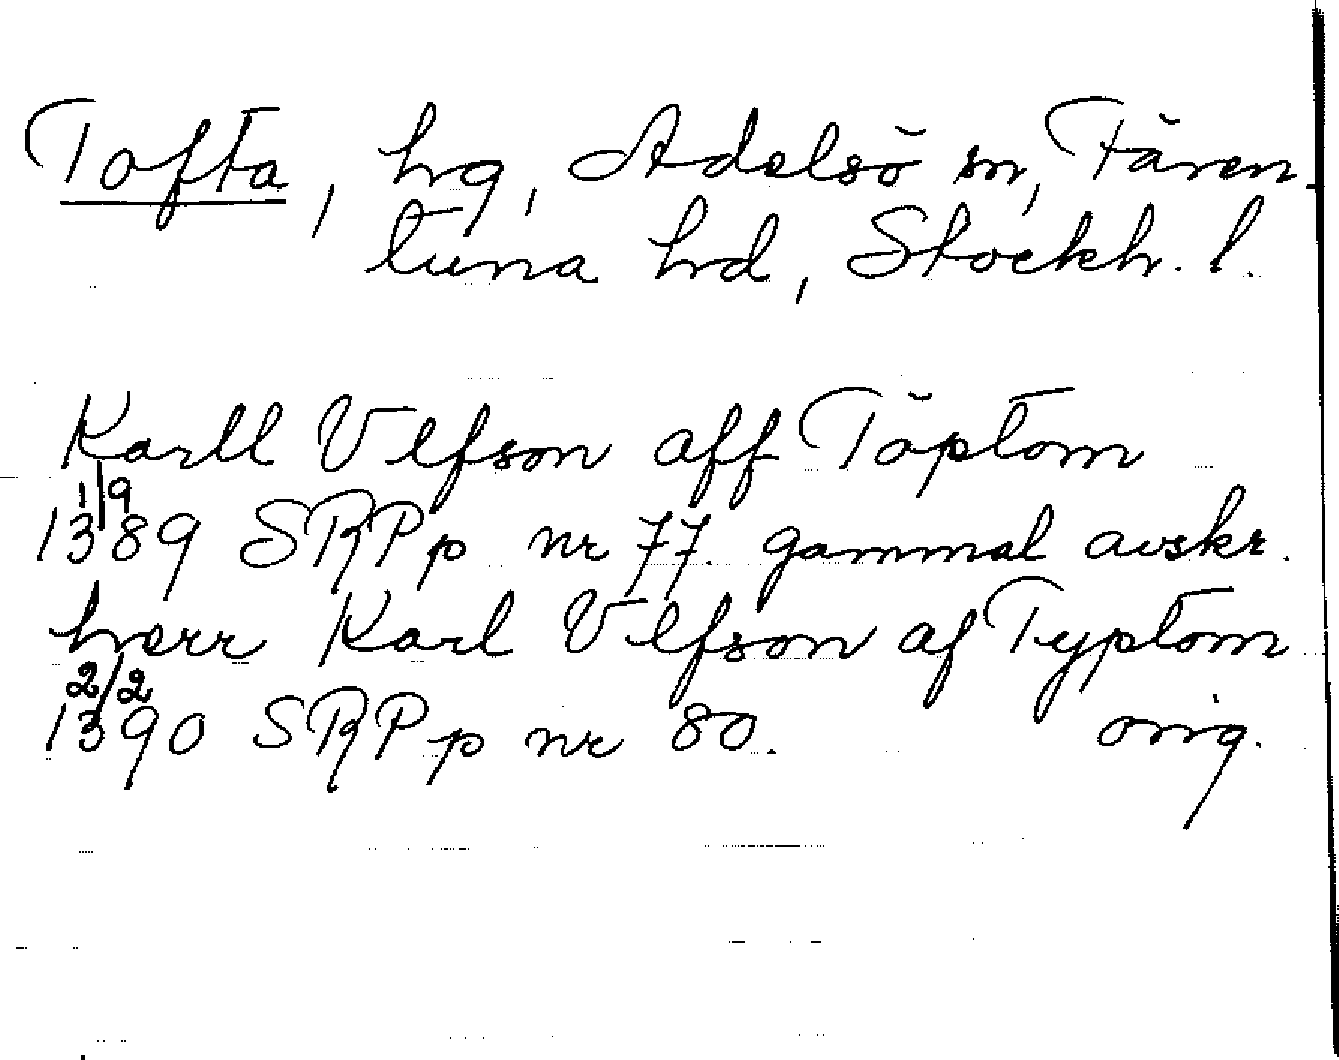 Tofta, hg, Adelsö sn, Fären-
tuna hd, Stockh. l.
Karll Vlfson aff Töptom
1/9
1389 SRPp nr 77. gammal avskr.
hærr Karl Vlfson af Typtom
2/2
1390 SRPp nr 80. orig.